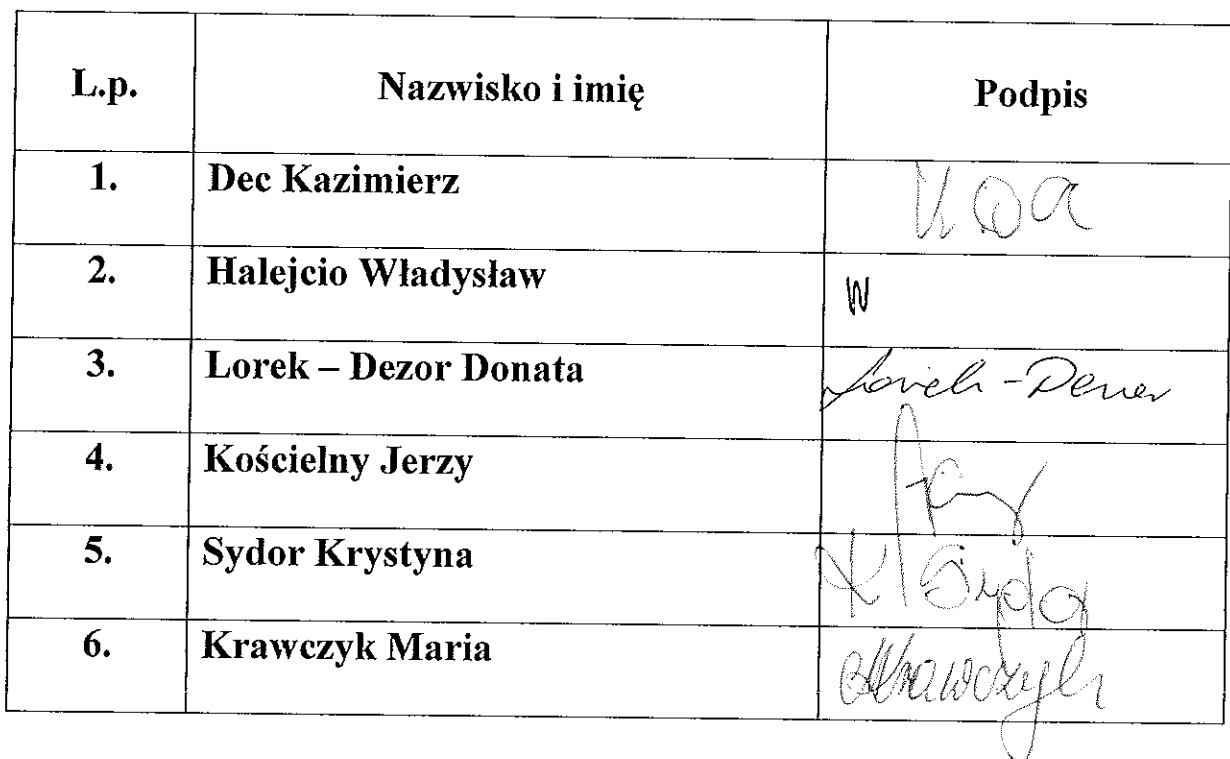 L.p. Nazwisko i imię Podpis
1. Dec Kazimierz
2. Halejcio Władysław W
3. Lorek – Dezor Donata Lorek - Dezor
4. Kościelny Jerzy
5. Sydor Krystyna K Sydor
6. Krawczyk Maria MKrawczyk